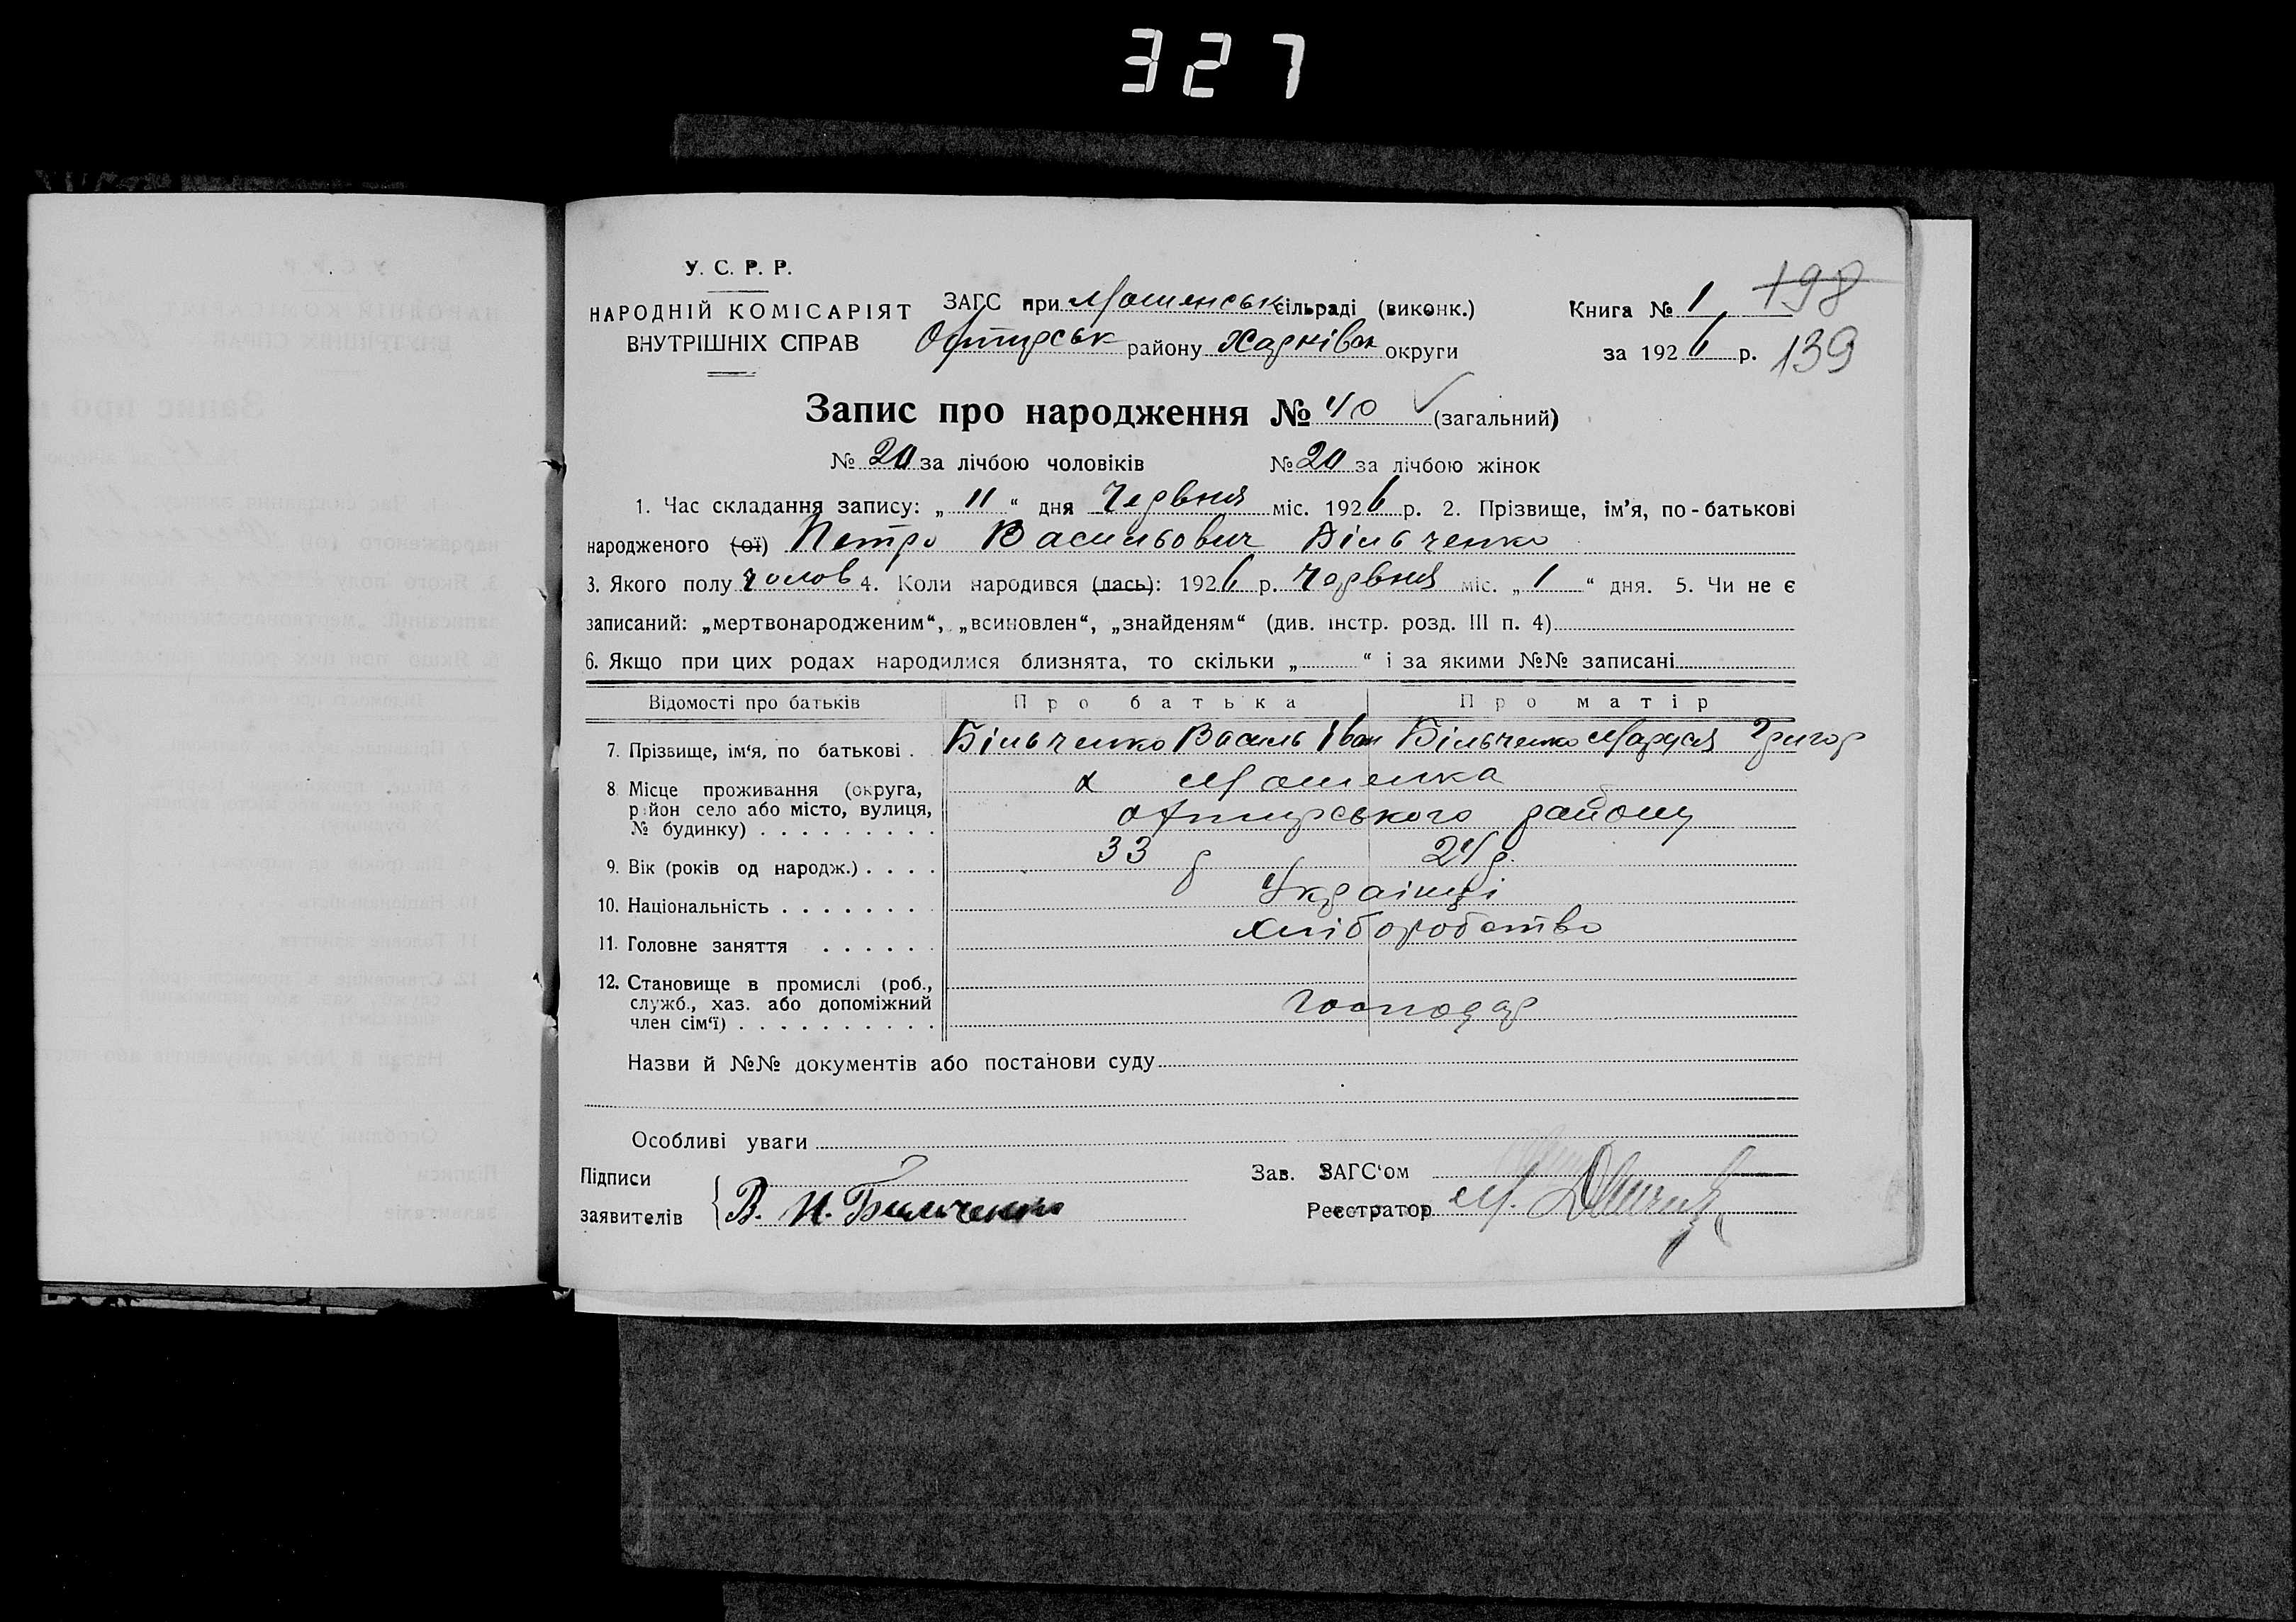 327
У. С. Р. Р.
НАРОДНІЙ КОМІСАРІЯТ
ВНУТРІШНІХ СПРАВ
ЗАГС при Мошенськ сільраді (виконк.)
Охтирськ району Харківск округи
Книга № 1
198
за 1926 р. 139
Запис про народження № 40 (загальний)
№ 20 за лічбою чоловіків № 20 за лічбою жінок
1. Час складання запису: „ 11 “ дня Червня міс. 1926 р. 2. Прізвище, ім’я, по-батькові
народженого (ої) Петро Васильович Більченко
3. Якого полу чолов 4. Коли народився (лась): 1926 р. Червня міс. „ 1 “ дня. 5. Чи не є
записаний: „мертвонародженим“, „всиновлен“, „знайденям“ (див. інстр. розд. III п. 4)
6. Якщо при цих родах народилися близнята, то скільки „ “ і за якими №№ записані
Відомості про батьків Про батька Про матір
7. Прізвище, ім‘я, по батькові . Більченко Василь Іван Більченко Маруся Григор
8. Місце проживання (округа, х Мошенка
район село або місто, вулиця,
№ будинку) . . . . . . . . . Охтирського району
9. Вік (років од народж.) . . . . 33 р 24 р.
10. Національність . . . . . . . Українці
11. Головне заняття . . . . . . хліборобство
12. Становище в промислі (роб.,
служб., хаз. або допоміжний господар
член сім‘ї) . . . . . . . . . .
Назви й №№ документів або постанови суду
Особливі уваги
Підписи
заявителів В. И. Бильченко
Зав. ЗАГС‘ом
Реєстратор М.